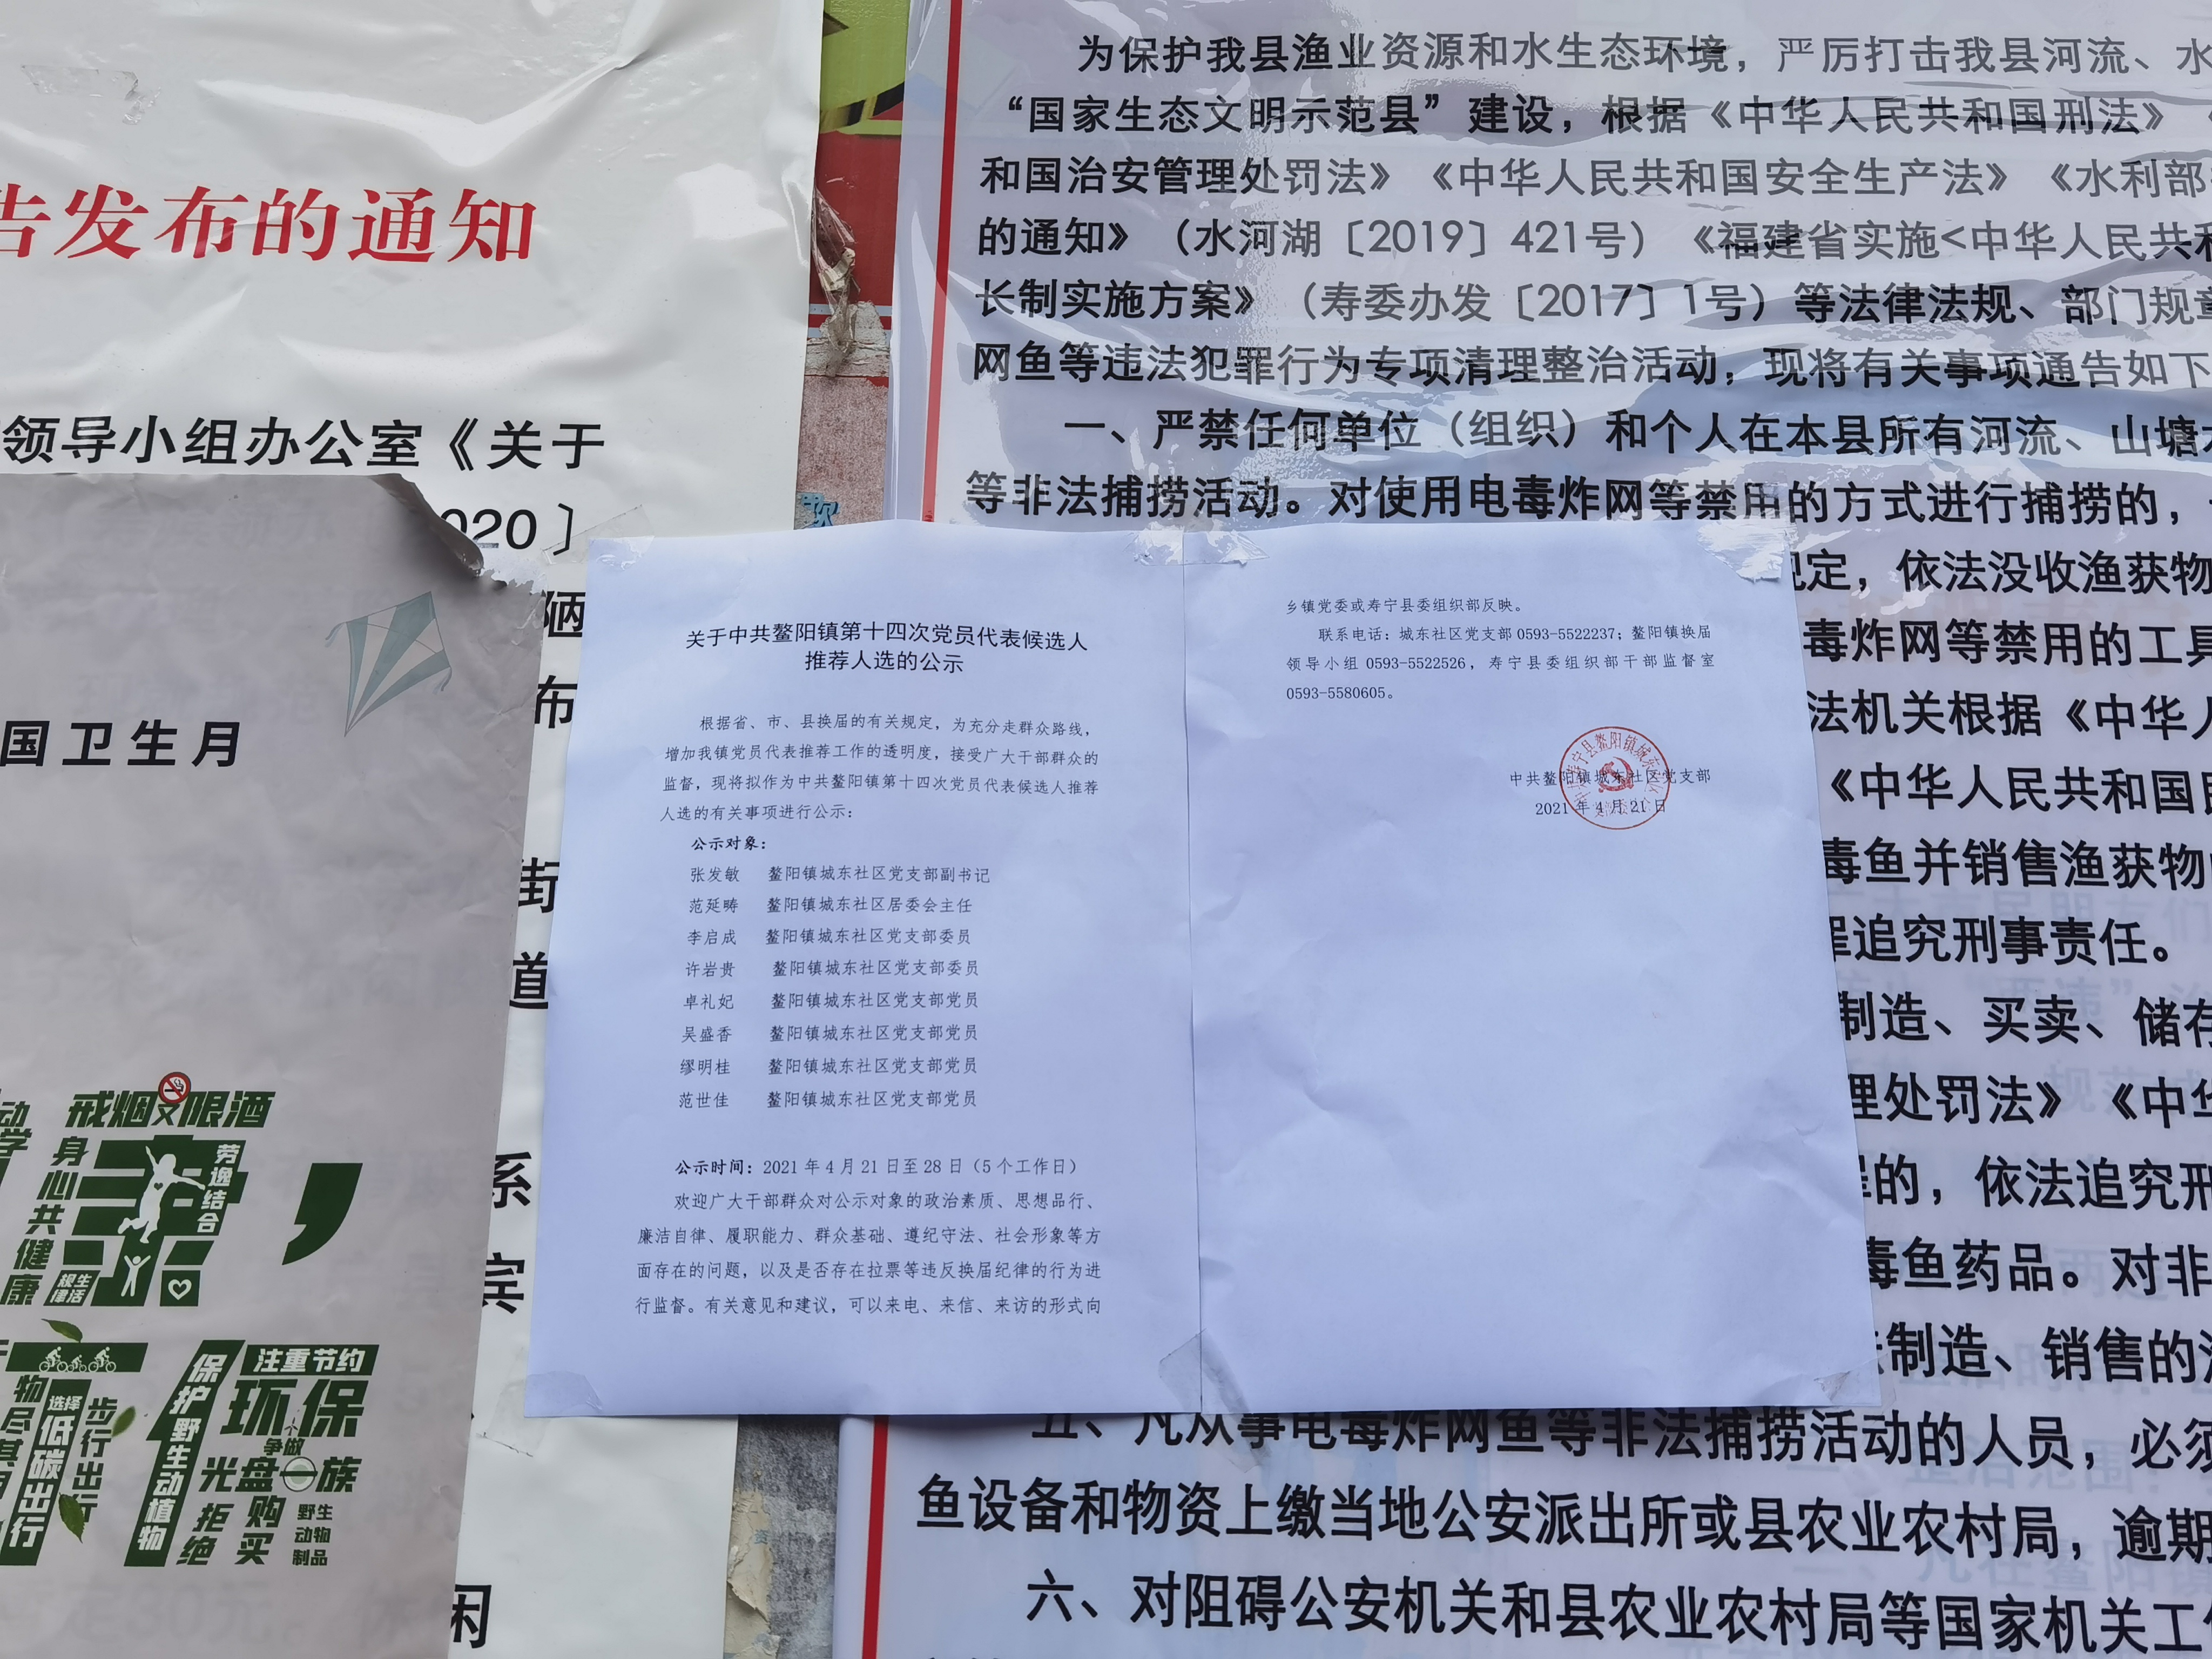 告发布的通知
领导小组办公室《关于
020〕
陋
布
街
道
系
宾
闲
国卫生月
戒烟限酒
身心共健康
劳逸结合
规律生活
保护野生动植物
注重节约
环保
争做
光盘一族
拒绝
购买
野生
动物
制品
选择
低碳出行
步行出行
物尽其
为保护我县渔业资源和水生态环境，严厉打击我县河流、水
“国家生态文明示范县”建设，根据《中华人民共和国刑法》
和国治安管理处罚法》《中华人民共和国安全生产法》《水利部
的通知》（水河湖〔2019〕421号）《福建省实施<中华人民共和
长制实施方案》（寿委办发〔2017〕1号）等法律法规、部门规章
网鱼等违法犯罪行为专项清理整治活动，现将有关事项通告如下
一、严禁任何单位（组织）和个人在本县所有河流、山塘水
等非法捕捞活动。对使用电毒炸网等禁用的方式进行捕捞的，
规定，依法没收渔获物
毒炸网等禁用的工具
法机关根据《中华人
《中华人民共和国
毒鱼并销售渔获物
罪追究刑事责任。
制造、买卖、储存
理处罚法》《中华
罪的，依法追究刑
毒鱼药品。对非
法制造、销售的
五、凡从事电毒炸网鱼等非法捕捞活动的人员，必须
鱼设备和物资上缴当地公安派出所或县农业农村局，逾期
六、对阻碍公安机关和县农业农村局等国家机关工作
关于中共鳌阳镇第十四次党员代表候选人
推荐人选的公示
根据省、市、县换届的有关规定，为充分走群众路线，
增加我镇党员代表推荐工作的透明度，接受广大干部群众的
监督，现将拟作为中共鳌阳镇第十四次党员代表候选人推荐
人选的有关事项进行公示：
公示对象：
张发敏 鳌阳镇城东社区党支部副书记
范延畴 鳌阳镇城东社区居委会主任
李启成 鳌阳镇城东社区党支部委员
许岩贵 鳌阳镇城东社区党支部委员
卓礼妃 鳌阳镇城东社区党支部党员
吴盛香 鳌阳镇城东社区党支部党员
缪明桂 鳌阳镇城东社区党支部党员
范世佳 鳌阳镇城东社区党支部党员
公示时间：2021年4月21日至28日（5个工作日）
欢迎广大干部群众对公示对象的政治素质、思想品行、
廉洁自律、履职能力、群众基础、遵纪守法、社会形象等方
面存在的问题，以及是否存在拉票等违反换届纪律的行为进
行监督。有关意见和建议，可以来电、来信、来访的形式向
乡镇党委或寿宁县委组织部反映。
联系电话：城东社区党支部0593-5522237；鳌阳镇换届
领导小组0593-5522526，寿宁县委组织部干部监督室
0593-5580605。
中共鳌阳镇城东社区党支部
2021年4月21日